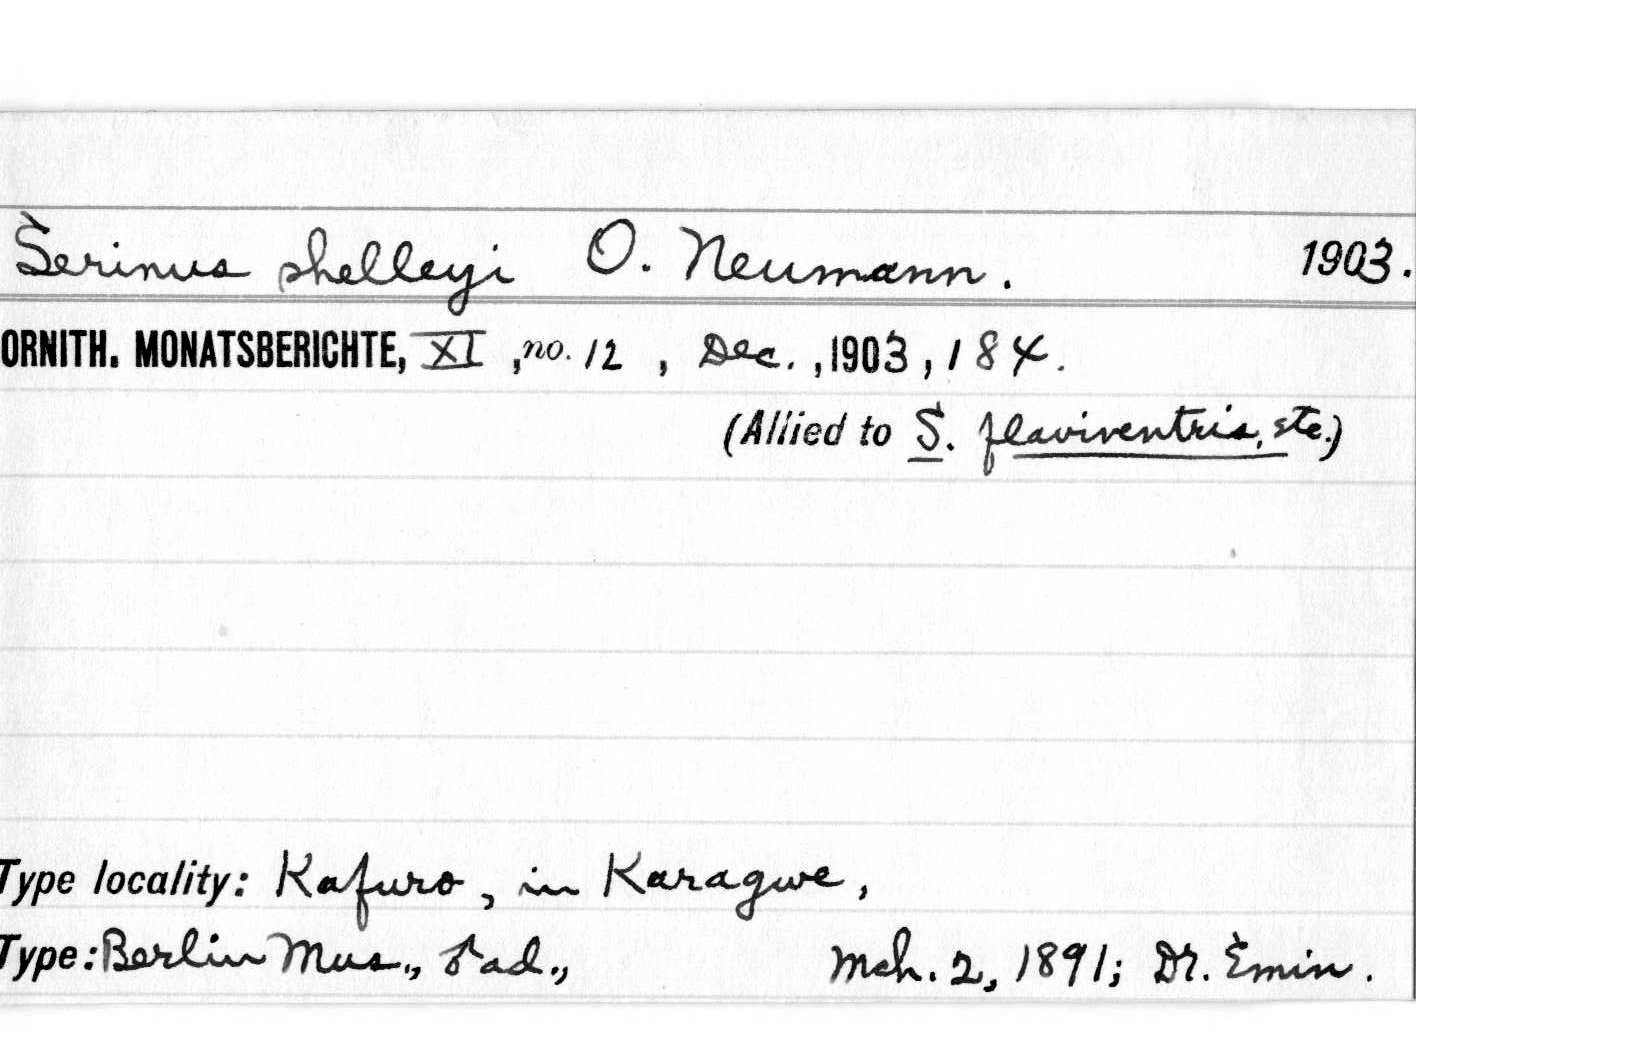 Serinus shelleyi O. Neumann. 1903.
ORNITH. MONATSBERICHTE, XI, no. 12, Dec., 1903, 184.
(Allied to S. flaviventris, etc.)
Type locality: Kafuro, in Karagwe,
Type: Berlin Mus., ♂ ad., Mch. 2, 1891; Dr. Emin.